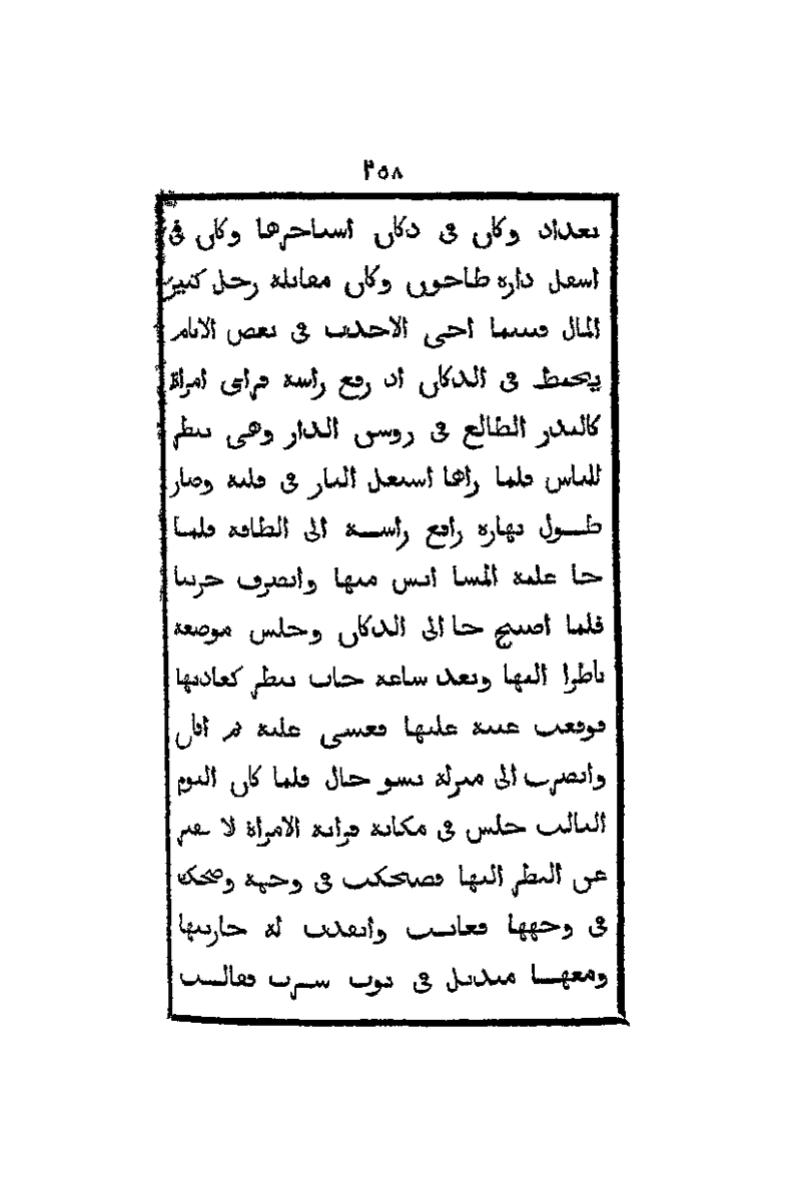 ٢٥٨
بغداد وكان فى دكان استاجرها وكان فى
اسفل داره طاحون وكان مقابلة رجل كثير
المال فبينما اخى الاحدب فى بعض الايام
يخيط فى الدكان اذ رفع راسة فراى امراة
كالبدر الطالع فى روسن الدار وهى تنظر
للناس فلما راها اشتعل النار فى قلبة وصار
طول نهاره رافع راسة الى الطاقة فلما
جا علية المسا ايس منها وانصرف حزينا
فلما اصبح جا الى الدكان وجلس موضعة
ناظرا اليها وبعد ساعة جات تنظر كعادتها
فوقعت عينة عليها فغشى علية ثم افاق
وانصرف الى منزلة بسو حال فلما كان اليوم
الثالث جلس فى مكانة فراتة الامراة لا
عن النظر اليها فضحكت فى وجهة وضحك
فى وجهها فغابت وانفذت لة جاريتها
ومعها منديل فى ثوب شرب فقالت